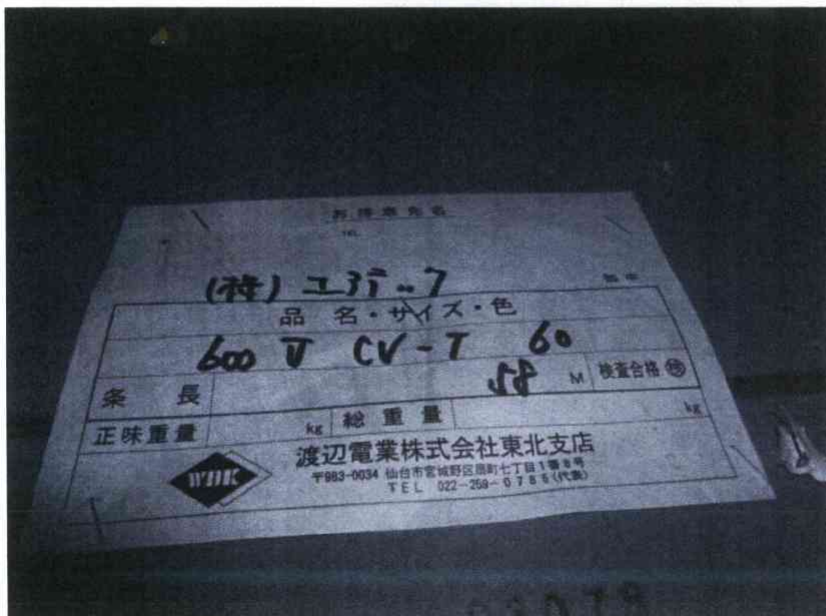 お得意先名
TEL
(株) ユアテック 御中
品名・サイズ・色
600V CV-T 60
条長 58 M 検査合格
正味重量 kg 総重量 kg
WDK 渡辺電業株式会社東北支店
〒983-0034 仙台市宮城野区扇町七丁目1番8号
TEL 022-259-0786(代表)